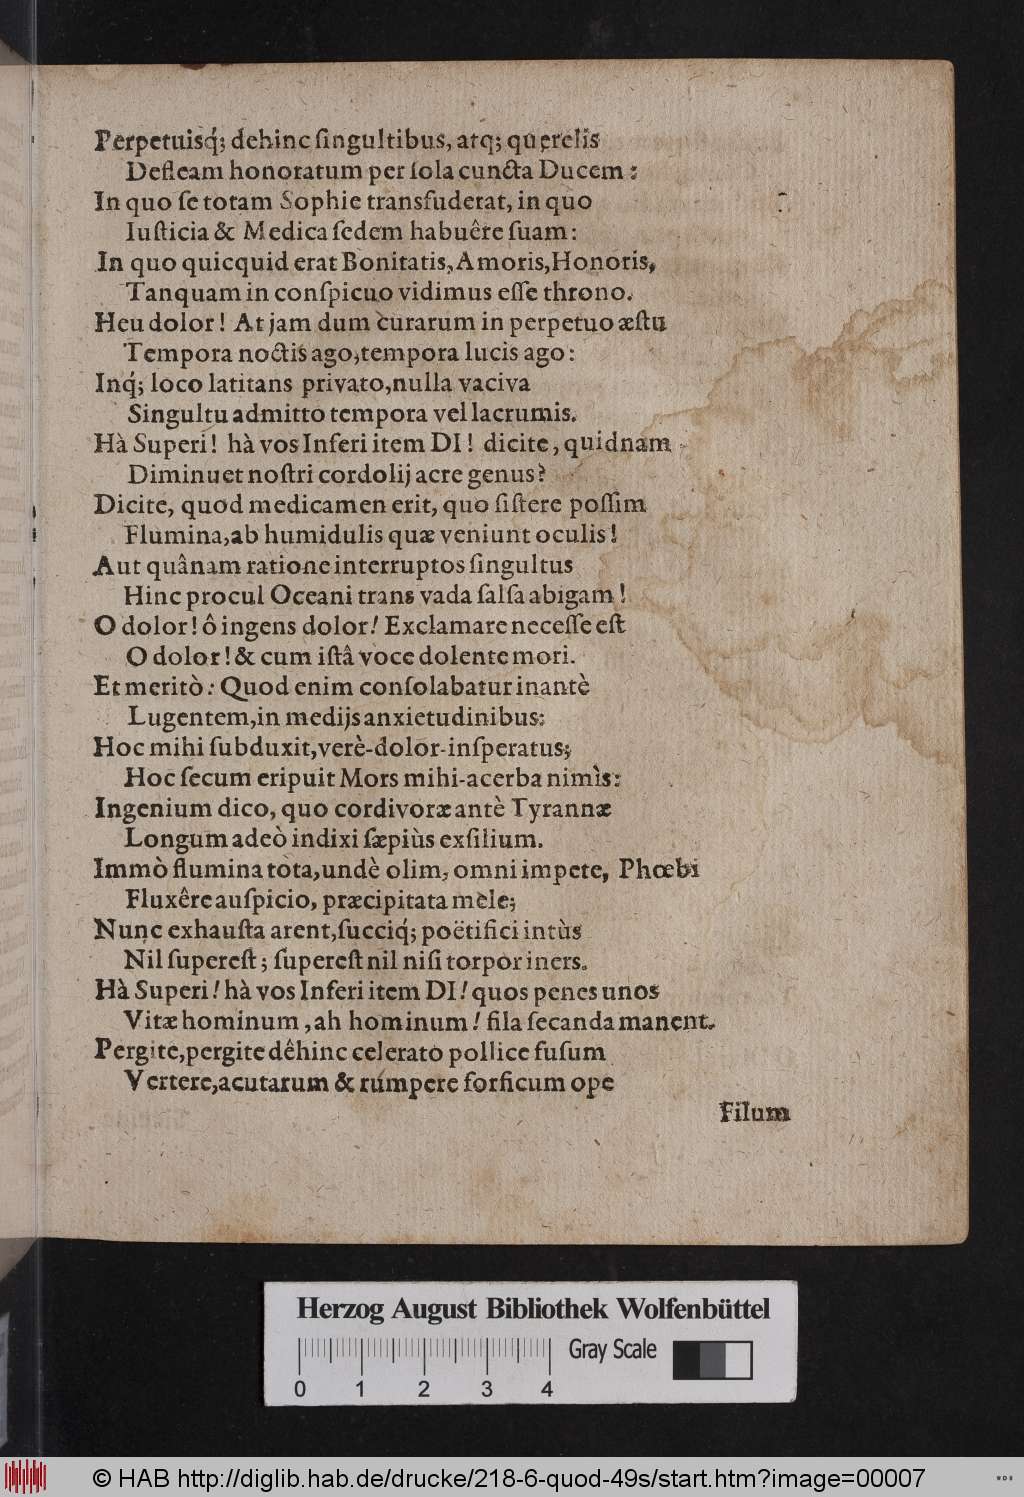 Perpetuisq́; dehinc ſingultibus, atq; querelis
Defleam honoratum per ſola cuncta Ducem:
In quo ſe totam Sophie transfuderat, in quo
Iuſticia & Medica ſedem habuêre ſuam:
In quo quicquid erat Bonitatis, Amoris, Honoris,
Tanquam in conſpicuo vidimus eſſe throno.
Heu dolor! At jam dum curarum in perpetuo æſtu
Tempora noctis ago, tempora lucis ago:
Inq́; loco latitans privato, nulla vaciva
Singultu admitto tempora vel lacrumis.
Hà Superi! hà vos Inferi item DI! dicite, quidnam
Diminuet noſtri cordolij acre genus?
Dicite, quod medicamen erit, quo ſiſtere poſſim
Flumina, ab humidulis quæ veniunt oculis!
Aut quânam ratione interruptos ſingultus
Hinc procul Oceani trans vada ſalſa abigam!
O dolor! ô ingens dolor! Exclamare neceſſe eſt
O dolor! & cum iſtâ voce dolente mori.
Et meritò: Quod enim conſolabatur inantè
Lugentem, in medijs anxietudinibus:
Hoc mihi ſubduxit, verè-dolor-inſperatus;
Hoc ſecum eripuit Mors mihi-acerba nimìs:
Ingenium dico, quo cordivoræ antè Tyrannæ
Longum adeò indixi ſæpiùs exſilium.
Immò flumina tota, undè olim, omni impete, Phœbi
Fluxêre auſpicio, præcipitata mele;
Nunc exhauſta arent, ſucciq́; poëtifici intùs
Nil ſupereſt; ſupereſt nil niſi torpor iners.
Hà Superi! hà vos Inferi item DI! quos penes unos
Vitæ hominum, ah hominum! fila ſecanda manent.
Pergite, pergite dêhinc celerato pollice fuſum
Vertere, acutarum & rumpere forficum ope
Filum
Herzog August Bibliothek Wolfenbüttel
Gray Scale
0 1 2 3 4
© HAB http://diglib.hab.de/drucke/218-6-quod-49s/start.htm?image=00007